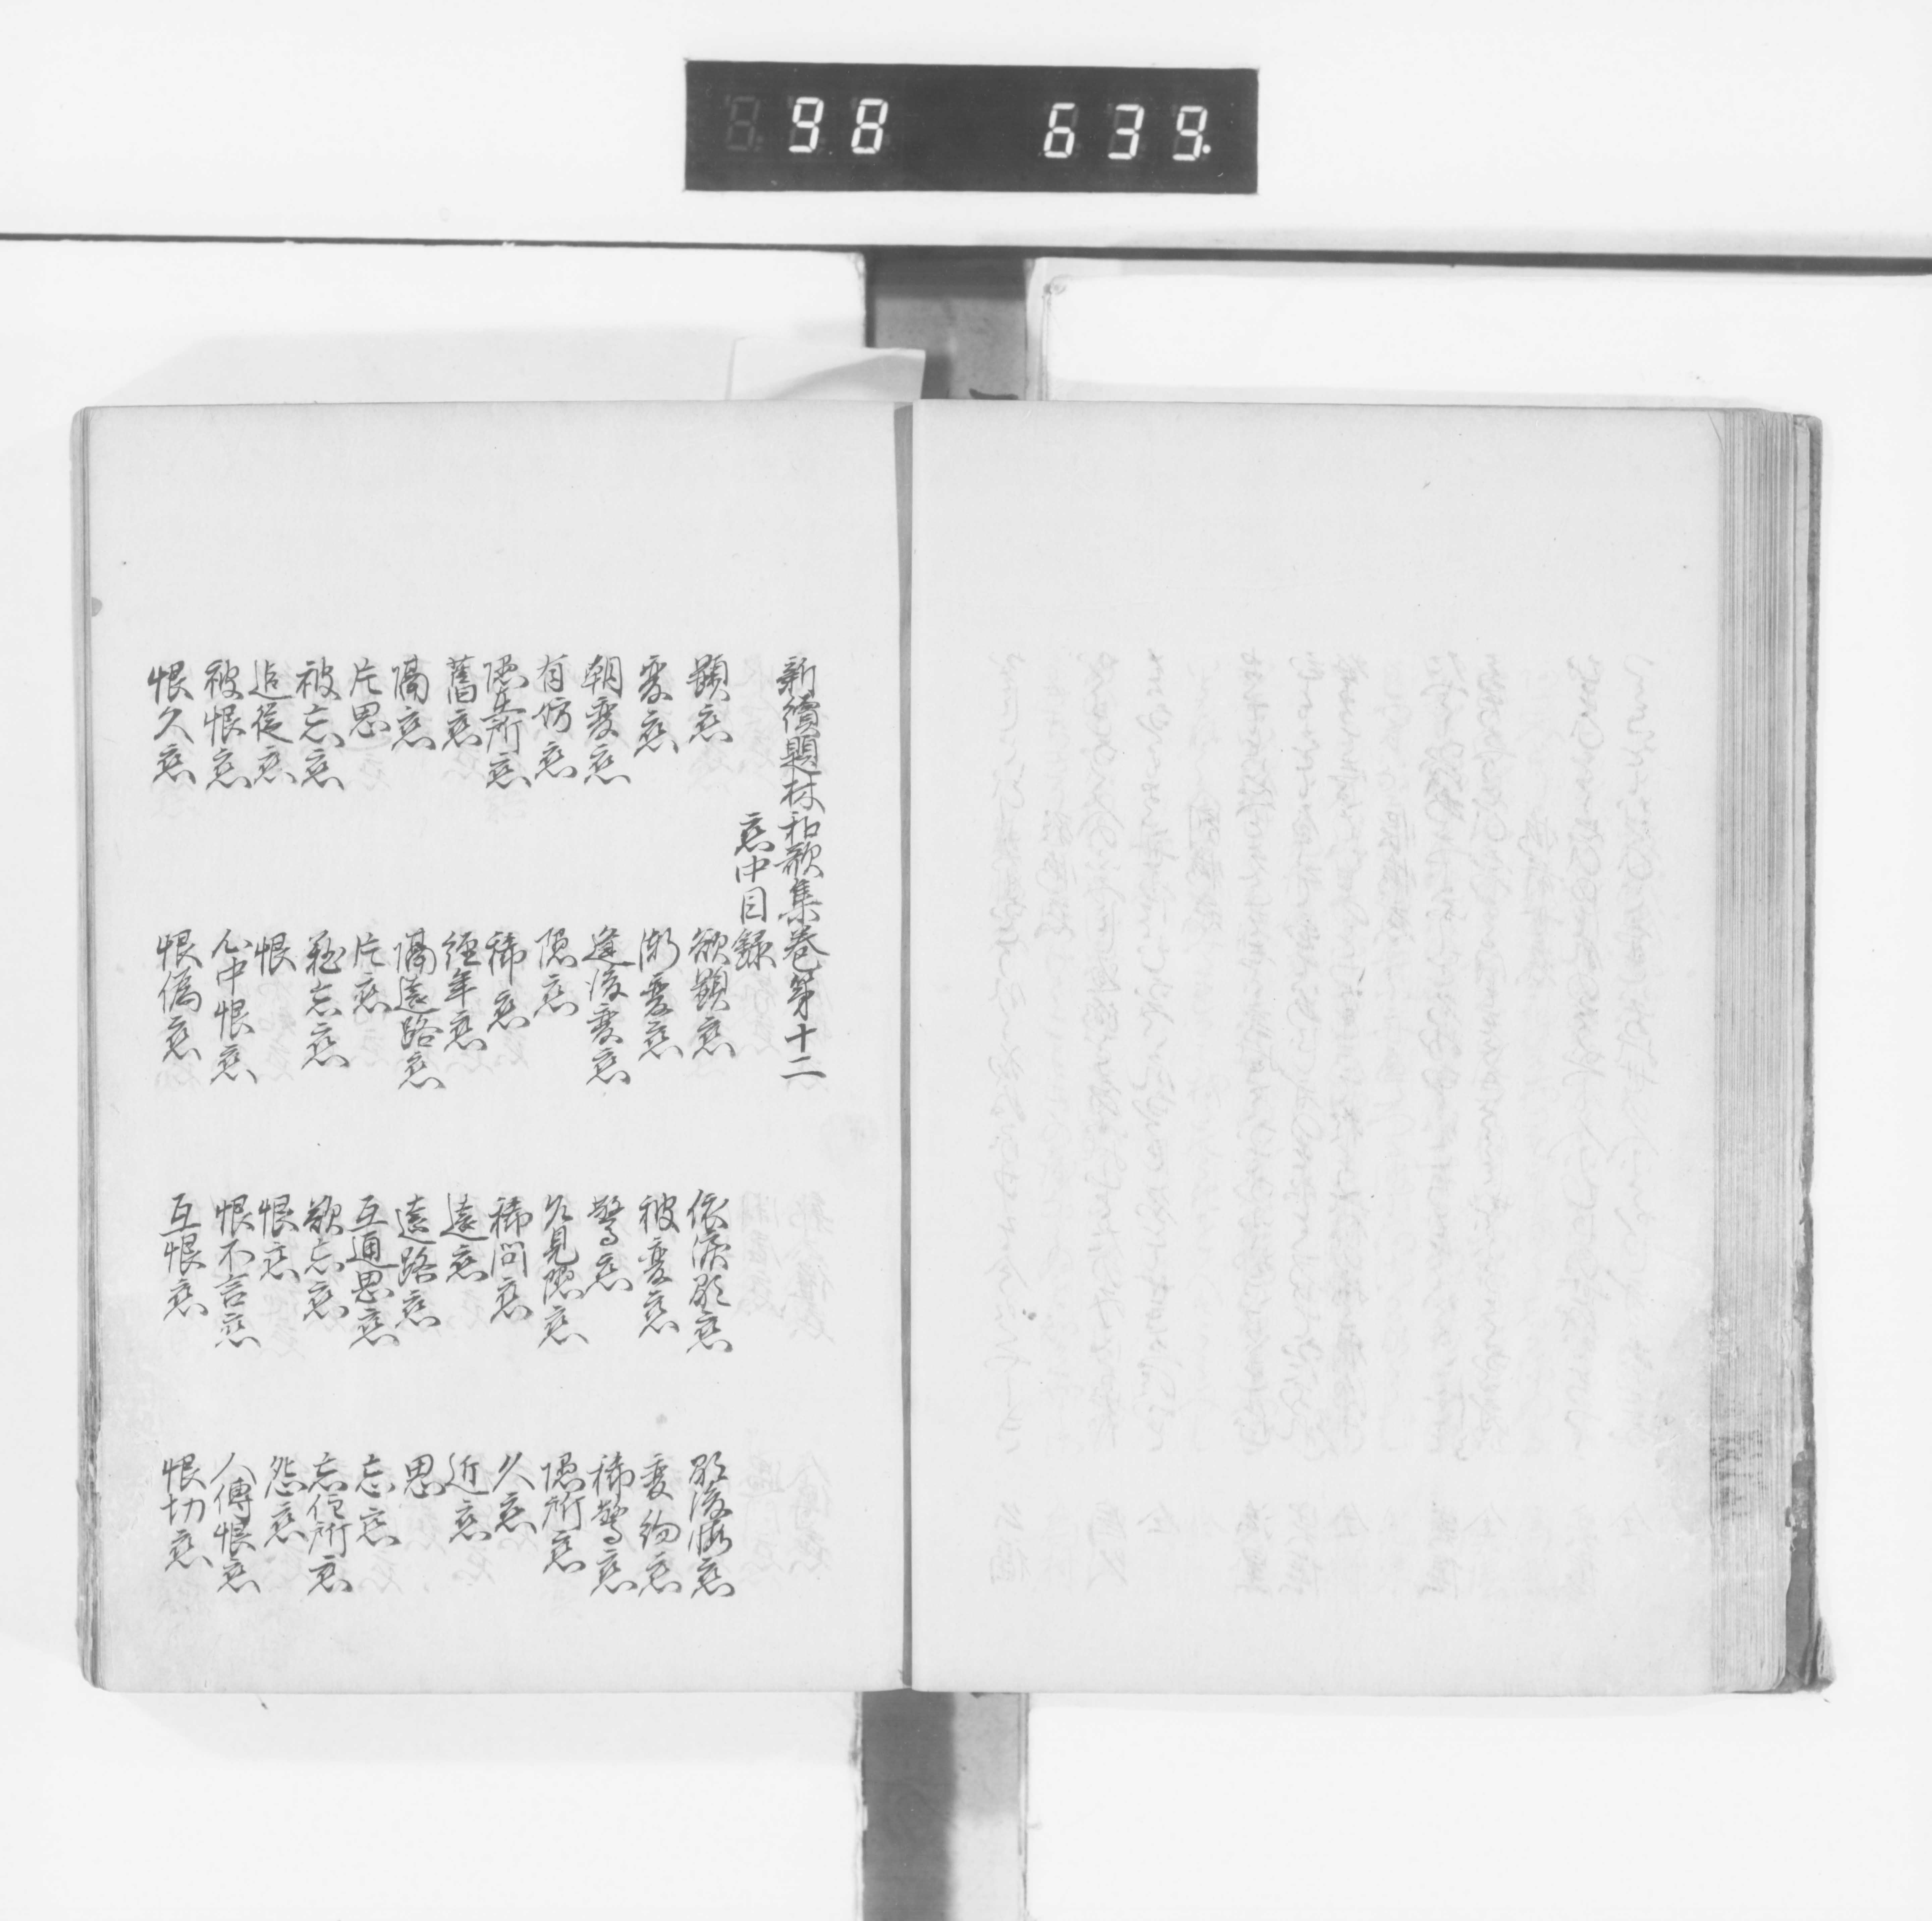 98 639.
新續題林和歌集巻第十二
恋中目録
顕恋 欲顕恋 依涙顕恋 顕後悔恋
変恋 漸変恋 被変恋 変約恋
朝変恋 逢後変恋 驚恋 稀驚恋
有仍恋 隠恋 乍見隠恋 隠所恋
隠在所恋 稀恋 稀問恋 久恋
舊恋 経年恋 遠恋 近恋
隔恋 隔遠路恋 遠路恋 思
片思 片恋 互通思恋 忘恋
被忘恋 難忘恋 欲忘恋 忘住所恋
追従恋 恨 恨恋 怨恋
被恨恋 心中恨恋 恨不言恋 人傳恨恋
恨久恋 恨偽恋 互恨恋 恨切恋